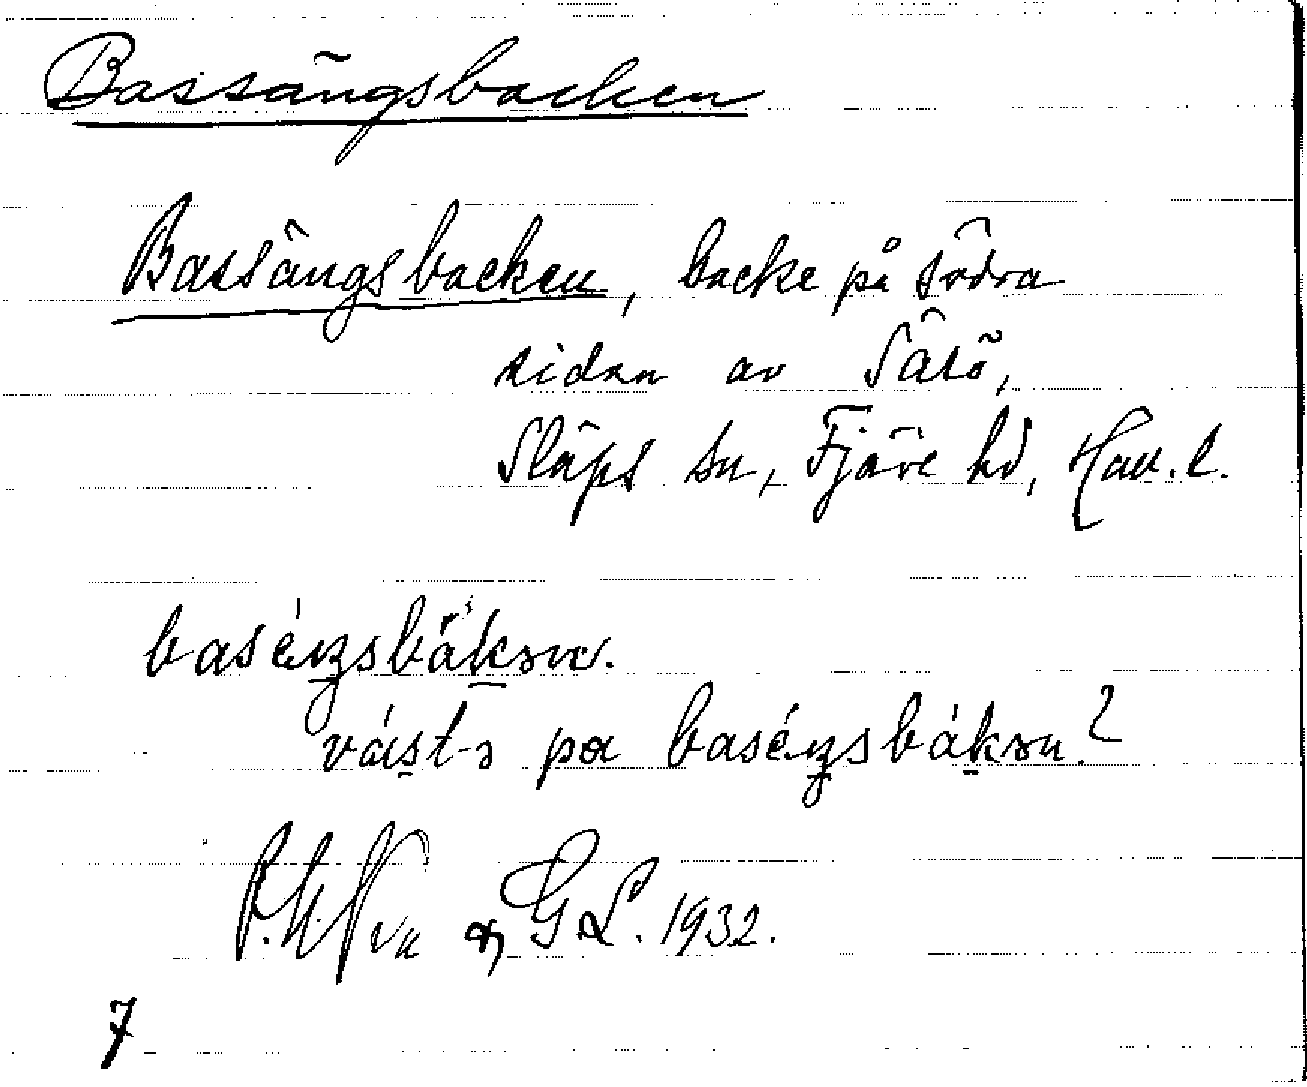 Bassängsbacken
Bassängsbacken, backe på södra
sidan av Särö,
Släps sn, Fjäre hd, Hall. l.
baséŋsbàkən.
vást-ə pa baséŋsbákən?
G L. 1932.
7